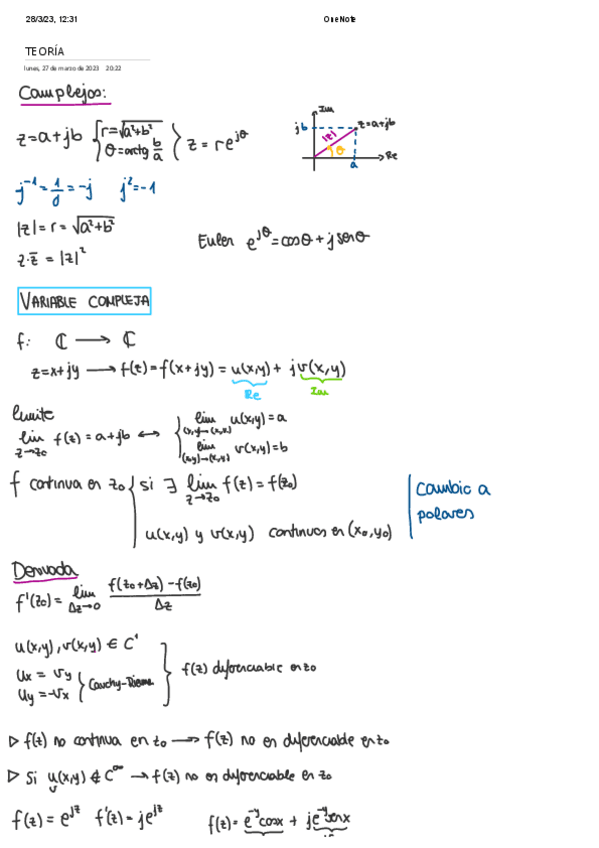 28/3/23, 12:31 OneNote
TEORÍA
lunes, 27 de marzo de 2023 20:22
Complejos:
z=a+jb { r=√(a²+b²) θ=arctg b/a } z = re^{jθ}
Im jb |z| z=a+jb θ a Re
j⁻¹=1/j=-j j²=-1
|z|=r=√(a²+b²)
z·z̄ = |z|²
Euler e^{jθ}=cosθ+j senθ
VARIABLE COMPLEJA
f: ℂ → ℂ
z=x+jy → f(z)=f(x+jy) = u(x,y) + jv(x,y)
Re Im
limite
lim z→z₀ f(z)=a+jb ↔ { lim u(x,y)=a
lim v(x,y)=b
f continua en z₀ { si ∃ lim z→z₀ f(z)=f(z₀)
u(x,y) y v(x,y) continuas en (x₀,y₀)
Cambio a
polares
Derivada
f'(z₀)= lim Δz→0 (f(z₀+Δz)-f(z₀))/Δz
u(x,y), v(x,y) ∈ C¹
ux = vy
uy=-vx } Cauchy-Rieman } f(z) diferenciable en z₀
▷ f(z) no continua en z₀ → f(z) no es diferenciable en z₀
▷ Si u(x,y) ∉ C^∞ → f(z) no es diferenciable en z₀
v
f(z)=e^{jz} f'(z)=je^{jz} f(z)=e^{-y}cosx + je^{-y}senx